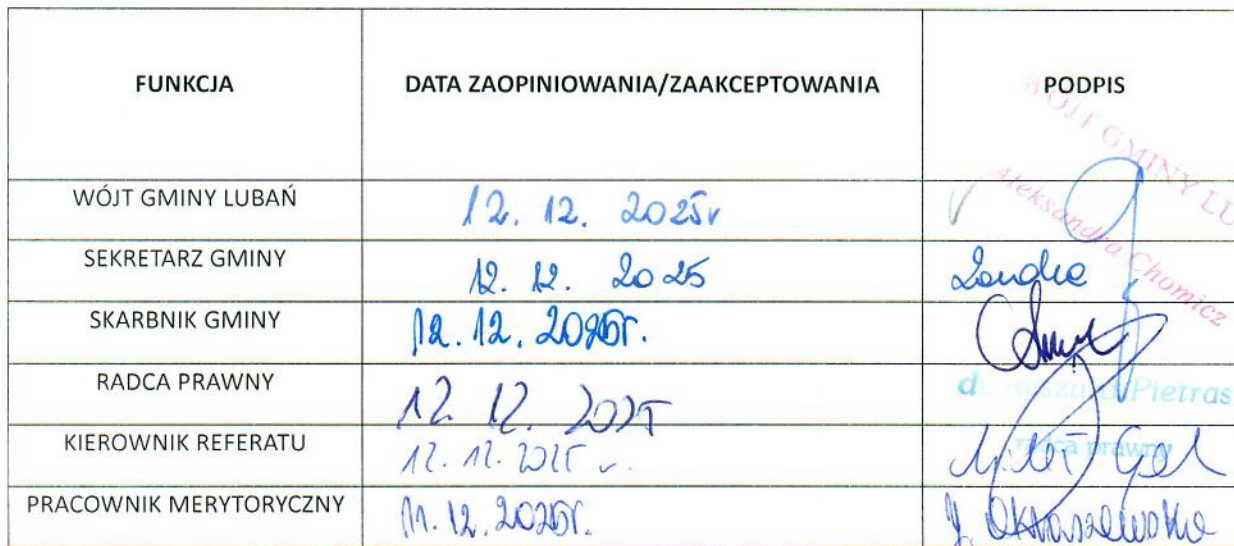 FUNKCJA DATA ZAOPINIOWANIA/ZAAKCEPTOWANIA PODPIS
WÓJT GMINY LU
Aleksandra Chomicz
WÓJT GMINY LUBAŃ 12. 12. 2025r
SEKRETARZ GMINY 12. 12. 2025
SKARBNIK GMINY 12. 12. 2025r.
RADCA PRAWNY 12. 12. 2025
Pietras
radca prawny
KIEROWNIK REFERATU 12. 12. 2025 r.
PRACOWNIK MERYTORYCZNY 11. 12. 2025r.